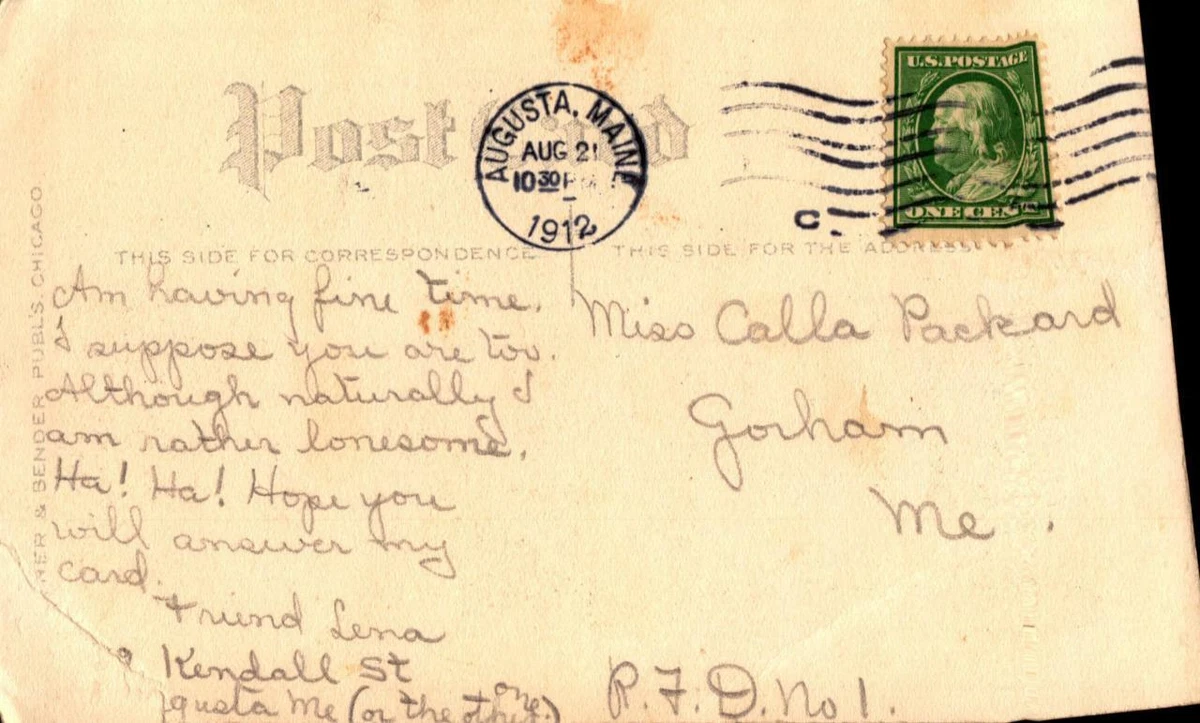 Post Card
AUGUSTA, MAINE
AUG 21
10 30 P
1912
C.
U.S. POSTAGE
ONE CENT
THIS SIDE FOR CORRESPONDENCE
THIS SIDE FOR THE ADDRESS
NER & BENDER PUBL'S. CHICAGO
Am having fine time.
I suppose you are too.
Although naturally I
am rather lonesome.
Ha! Ha! Hope you
will answer my
card.
Friend Lena
Kendall St
gusta Me (or the other one.)
Miss Calla Packard
Gorham
Me.
R.F.D. No 1.